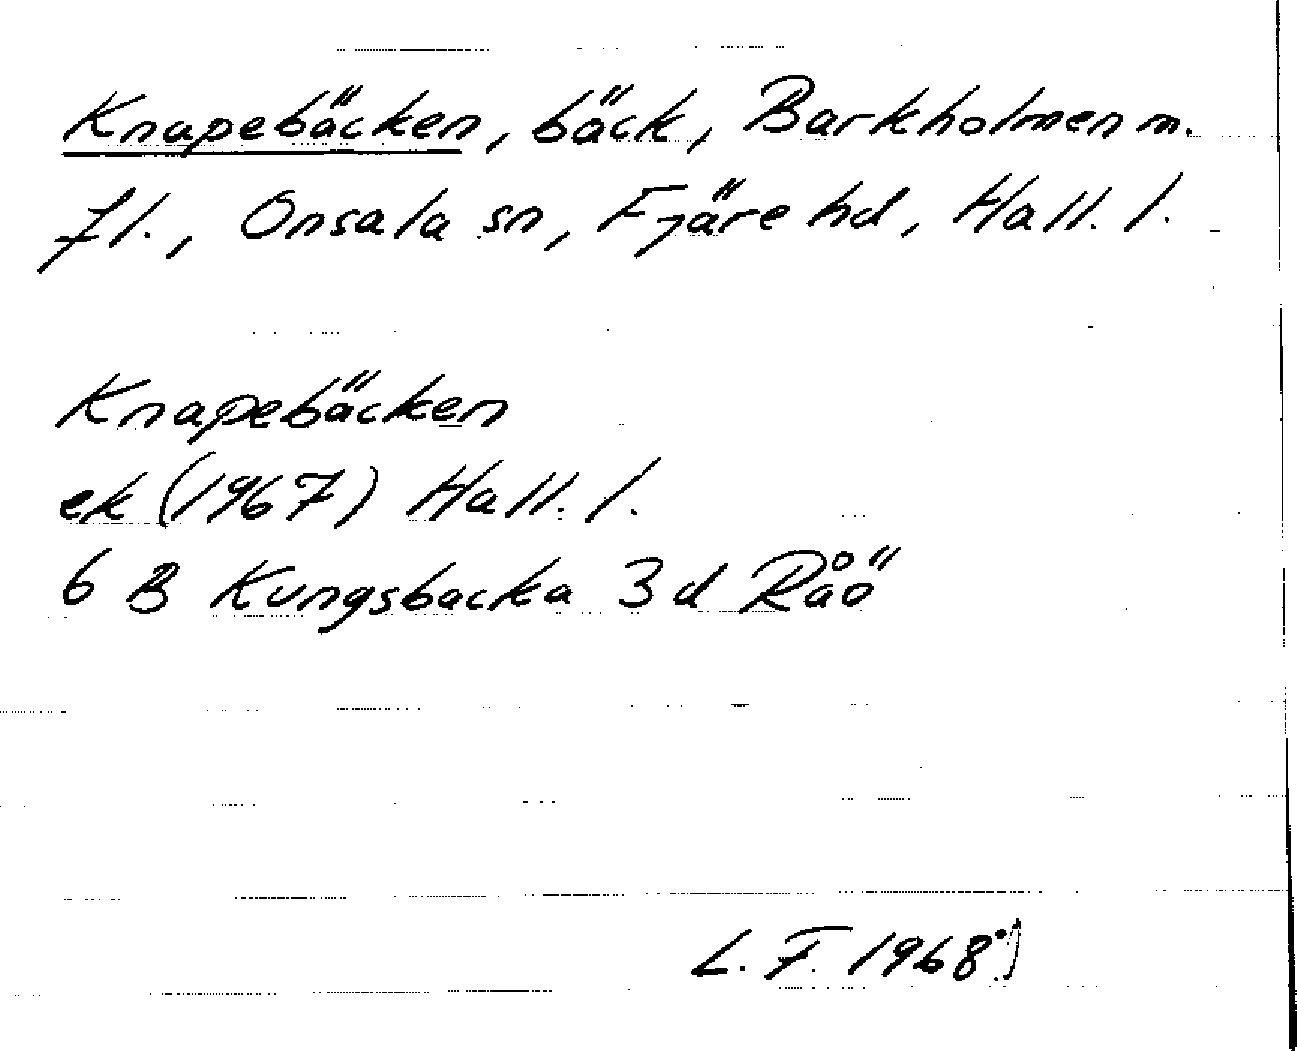 Knapebäcken, bäck, Barkholmen m.
fl., Onsala sn, Fjäre hd, Hall. l.
Knapebäcken
ek (1967) Hall. l.
6 B Kungsbacka 3 d Råö
L. F. 1968